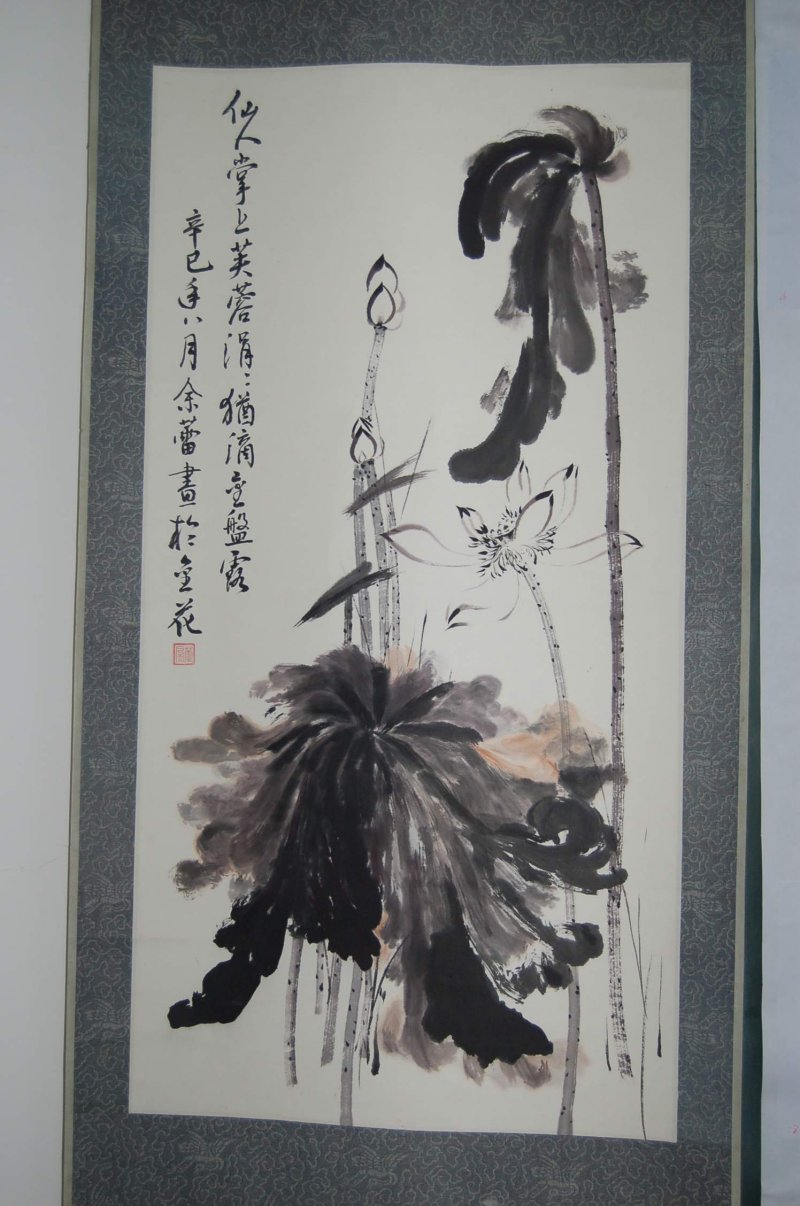 仙人掌上芙蓉涓〻猶滴金盤露
辛巳年八月余蕾畫於金花